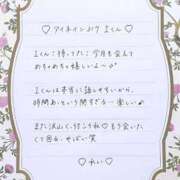 ♡ アイネイン♪ 9 Iくん ♡
Iくん♡待ってた♡今月も会えて
めちゃめちゃ嬉しいよ〜♪
Iくんは本当に話しやすいから、
時間あっという間すぎる…楽しい♪
また沢山くっつこうね♡もう会いた
くて困る、やばい 笑
♡ れい ♡